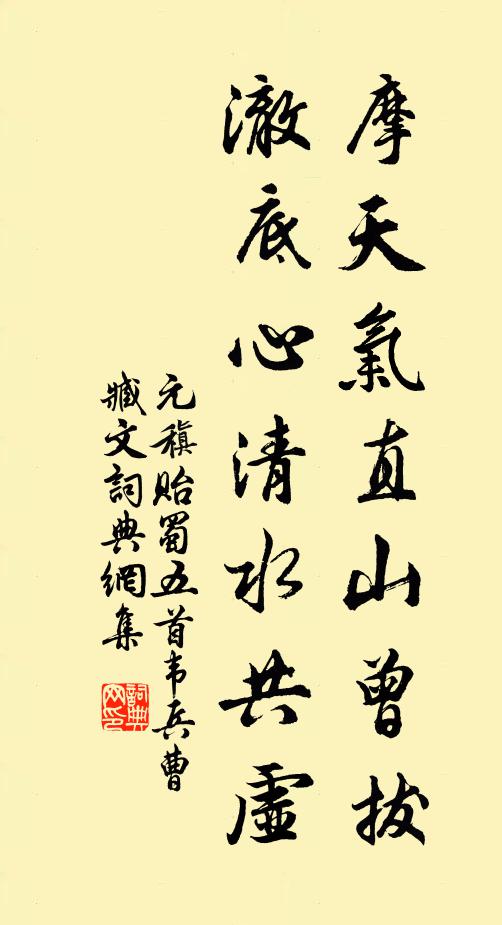 摩天氣直山曾拔
澈底心清水共虛
元稹貽蜀五首韦兵曹
臧文詞典網集
詞典网印